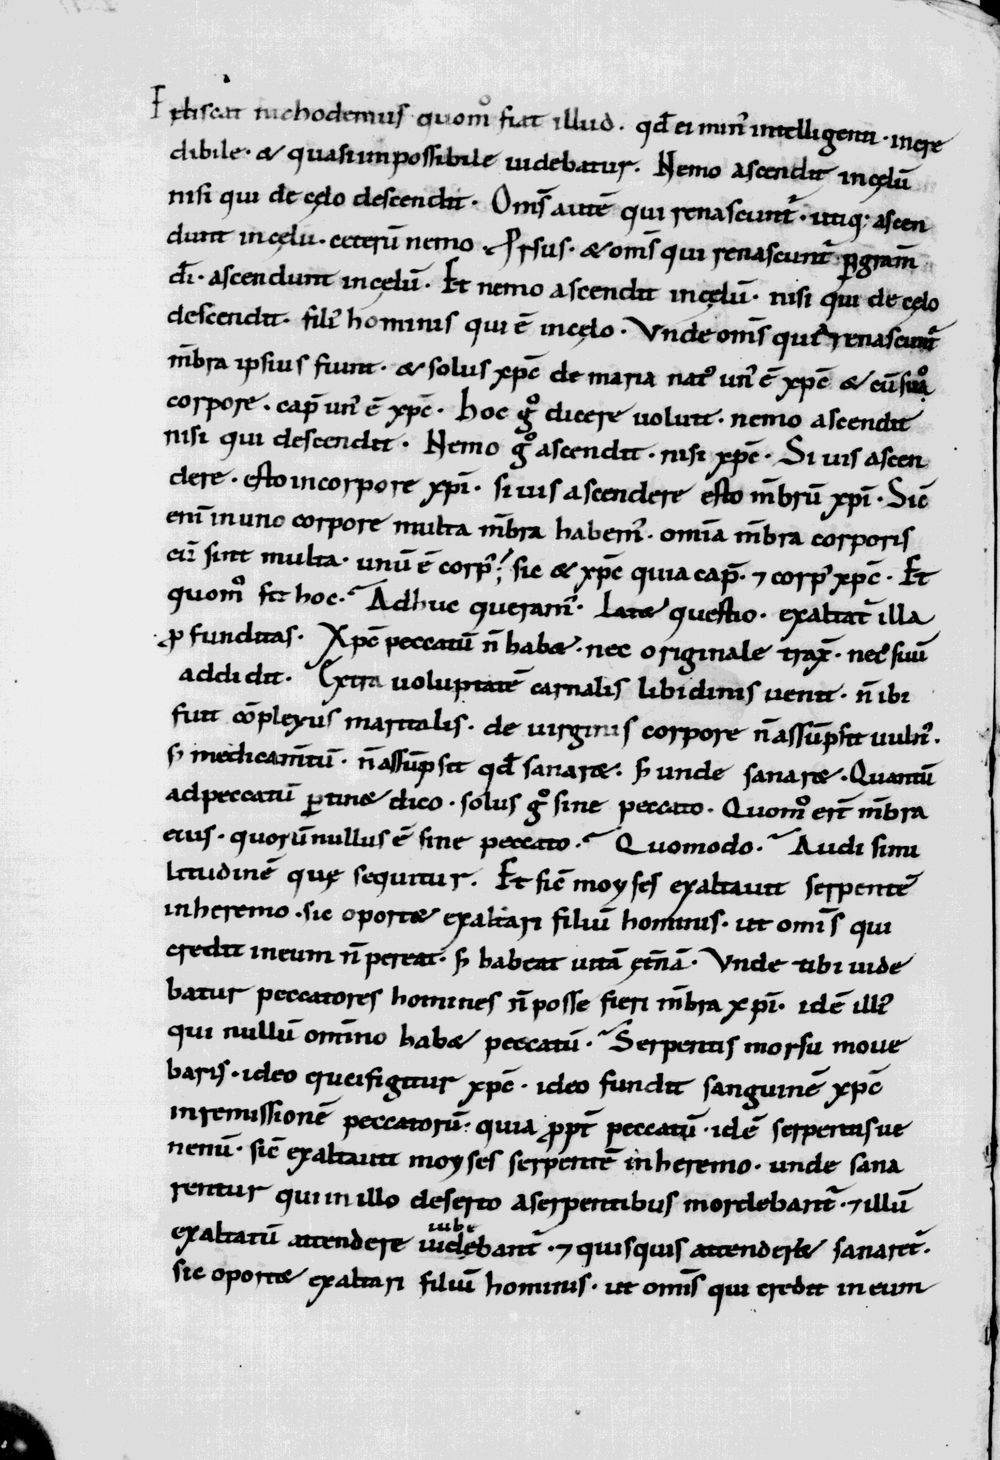 Et discat nichodemus quom̊ fiat illud. qđ ei min᾽ intelligenti · incre
dibile · & quasi inpossibile uidebatur. Nemo ascendit in cęlū
nisi qui de cęlo descendit. Om̄s autē qui renascunt᷑ · utiq; ascen
dunt in cęlū · ceterū nemo. Prsus · & om̄s qui renascunt᷑ p̱ gram̄
dī · ascendunt in cęlū. Et nemo ascendit in cęlū · nisi qui de cęlo
descendit · fili᾽ hominis qui ē in cęlo · Vnde om̄s qui renascunt᷑
m̄bra ipsius fiunt · & solus xp̄c de maria nat᾽ un᾽ ē xp̄c & cū suo
corpore · cap̄ un᾽ ē xp̄c · Hoc g̊ dicere uoluit · nemo ascendit
nisi qui descendit · Nemo g̊ ascendit · nisi xp̄c · Si uis ascen
dere · esto in corpore xp̄i · si uis ascendere esto m̄brū xp̄i · Sic̄
eni᷑ in uno corpore multa m̄bra habem᾽ · omīa m̄bra corporis
cū sint multa · unū ē corp᾽; sic & xp̄c quia cap̄ · ⁊ corp᾽ xp̄c · Et
quom̊ sit hoc · Adhuc queram᾽ · Latet questio · exaltat᷑ illa
p̱funditas · Xp̄c peccatū n̄ habet · nec originale trax̄ · nec suū
addidit · Extra uoluptatē carnalis libidinis uenit · n̄ ibi
fuit cōplexus maritalis · de uirginis corpore n̄ assūpsit uuln᾽ ·
s᷑ medicam̄tū · n̄ assūpsit qđ sanaret · s᷑ unde sanaret · Quantū
ad peccatū p̱tinet dico · solus g̊ sine peccato · Quom̊ er̄t m̄bra
eius · quorū nullus ē sine peccato · Quomodo · Audi simi
litudinē quę sequitur. Et sic̄ moyses exaltauit serpentē
in heremo · sic oportet exaltari filiū hominis · ut om̄is qui
credit in eum n̄ pereat · s᷑ habeat uitā ęt̄nā · Vnde tibi uide
batur peccatores homines n̄ posse fieri m̄bra xp̄i · idē illi᾽
qui nullū om̄ino habet peccatū · Serpentis morsu moue
baris · ideo crucifigitur xp̄c · ideo fundit sanguinē xp̄c
in remissionē peccatorū · quia p̱pt̄ peccatū · idē serpentis ue
nenū · sic̄ exaltauit moyses serpentē in heremo · unde sana
rentur qui in illo deserto a serpentibus mordebant᷑ · ⁊ illū
exaltatū attendere iubebant᷑ · ⁊ quisquis attenderet sanaret᷑ ·
sic oportet exaltari filiū hominis · ut om̄s qui credit in eum